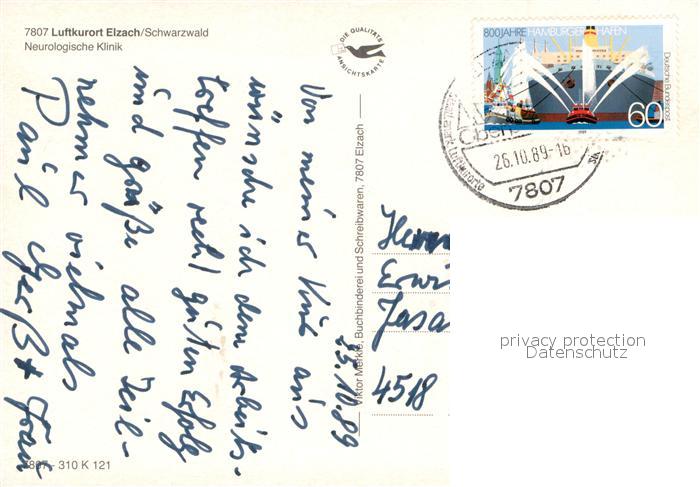 7807 Luftkurort Elzach/Schwarzwald
Neurologische Klinik
DIE QUALITÄTS
ANSICHTSKARTE
800 JAHRE HAMBURGER HAFEN
Deutsche Bundespost
60
1989
26.10.89-16
7807
25.10.89
Von meiner Kur aus
wünsche ich dem Arbeits-
treffen recht guten Erfolg
und grüße alle Teil-
nehmer vielmals
Paul + Frau
Viktor Merkle, Buchbinderei und Schreibwaren, 7807 Elzach
Herrn
Erwi
4518
privacy protection
Datenschutz
7807 - 310 K 121